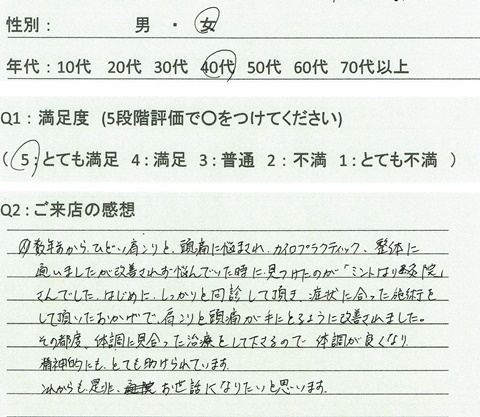 性別： 男 ・ 女
年代：10代 20代 30代 40代 50代 60代 70代以上
Q1：満足度 (5段階評価で〇をつけてください)
( 5：とても満足 4：満足 3：普通 2：不満 1：とても不満 )
Q2：ご来店の感想
数年前から、ひどい肩こりと、頭痛に悩まされ、カイロプラクティック、整体に
通いましたが改善されず悩んでいた時に見つけたのが「ミントはり灸院」
さんでした。はじめに、しっかりと問診して頂き、症状に合った施術を
して頂いたおかげで、肩こりと頭痛が手にとるように改善されました。
その都度、体調に見合った治療をして下さるので、体調が良くなり
精神的にも、とても助けられています。
これからも是非、お世話になりたいと思います。